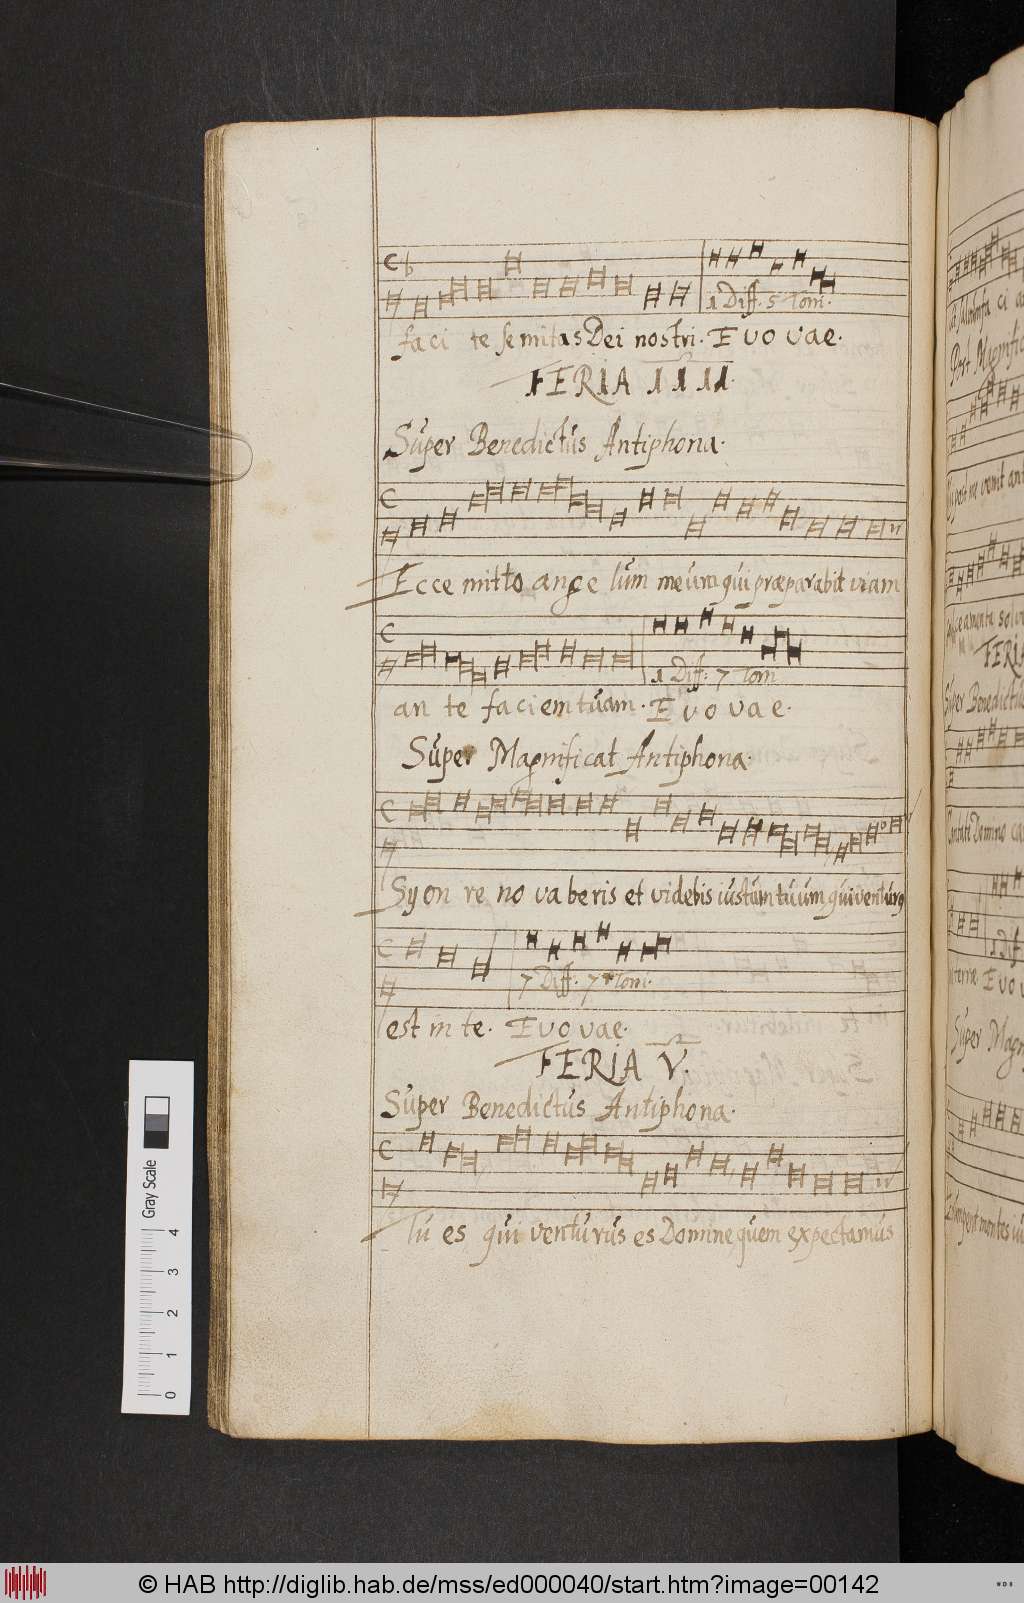 1 Diff. 5 Tom.
faci te semitas Dei nostri. Evovae.
FERIA IIII.
Super Benedictus Antiphona.
Ecce mitto ange lum meum qui præparabit viam
1 Diff. 7 Tom
an te faciem tuam. Evovae.
Super Magnificat Antiphona.
Syon re no va beris et videbis iustum tuum qui venturg
7 Diff. 7 Tom.
est in te. Evovae.
FERIA V.
Super Benedictus Antiphona.
Tu es qui venturus es Domine, quem expectamus
Gray Scale
0 1 2 3 4
Post Magnific
FERIA
Super Benedictus
Cantate Domino ca
terræ Evov
Super Magn
© HAB http://diglib.hab.de/mss/ed000040/start.htm?image=00142